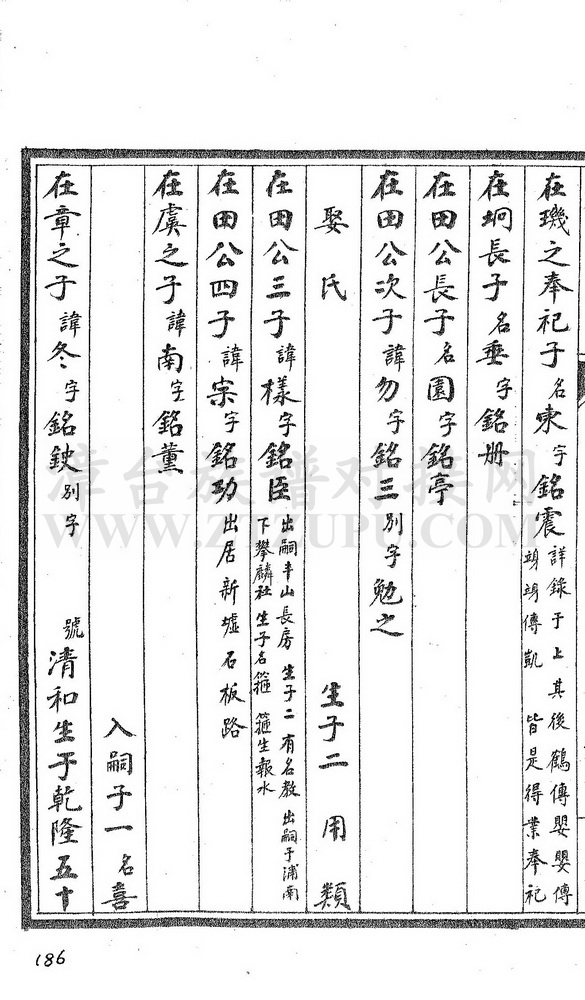 在璣之奉祀子名㖦字銘震詳錄于上其後鶴傳嬰嬰傳
翊翊傳凱 皆是得業奉祀
在坰長子名垂字銘册
在田公長子名園字銘亭
在田公次子諱勿字銘三別字勉之
娶氏 生子二 用 類
在田公三子諱樣字銘臣出嗣半山長房 生子二 有名教 出嗣于浦南
下攀麟社 生子名箍 箍生報水
在田公四子諱宲字銘功出居新墟石板路
在虞之子諱南字銘薰
入嗣子一名喜
在章之子諱冬字銘鈌別字 號清和生于乾隆五十
186
漳台族谱对接网
WWW.ZTZUPU.COM